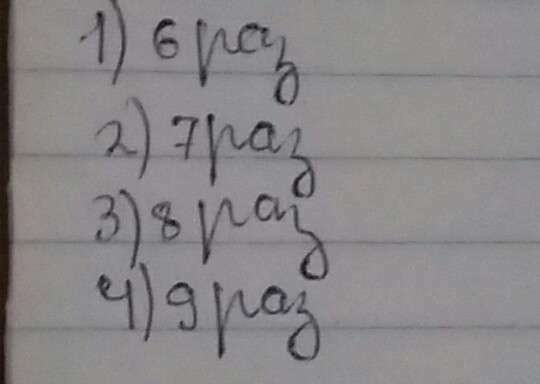 1) 6 раз
2) 7 раз
3) 8 раз
4) 9 раз